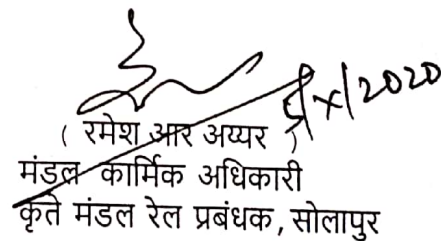 /X/2020
( रमेश आर अय्यर )
मंडल कार्मिक अधिकारी
कृते मंडल रेल प्रबंधक, सोलापुर